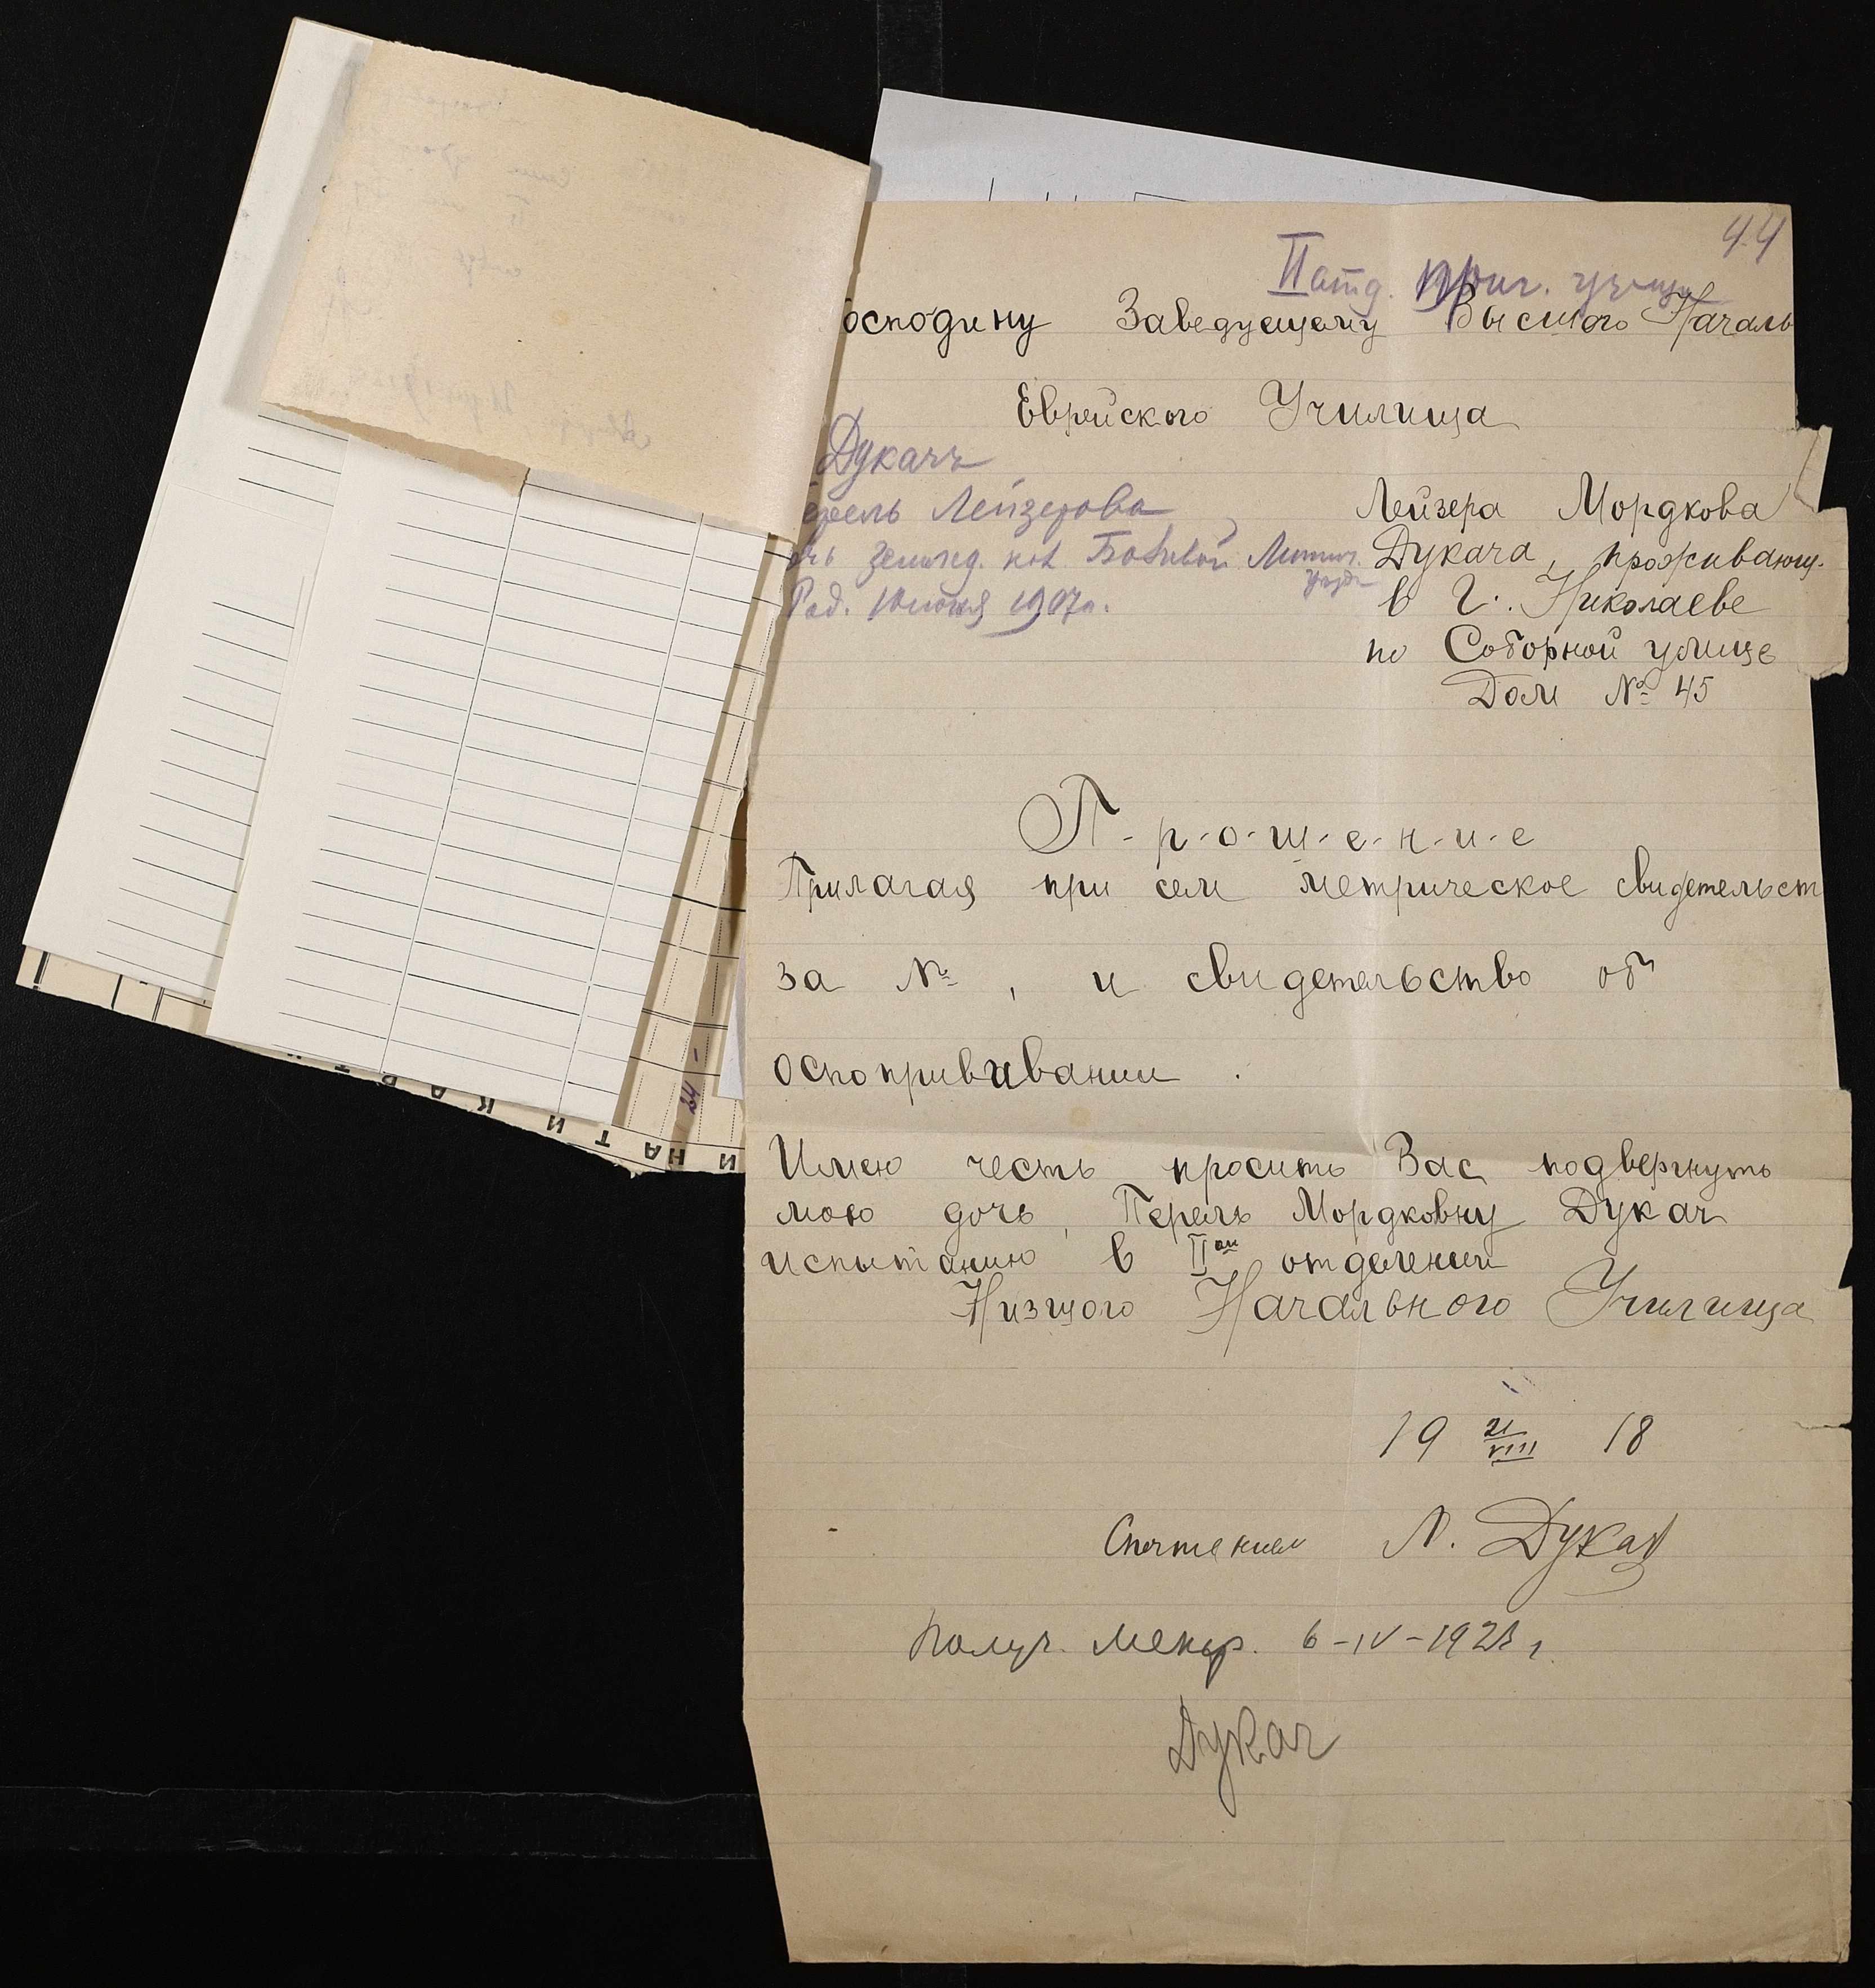 44
II отд. приг. училища
осподину Заведующему Высшого Началь
Еврейского Училища
Дукачъ
ерель Лейзерова
чь землед. кол. Бобровой
Род. 10 июня 1907 г.
Лейзера Мордкова
Дукача, проживающ.
в г. Николаеве
по Соборной улице
Дом № 45
П-р-о-ш-е-н-и-е
Прилагая при сем метрическое свидетельст
за №, и свидетельство об
оспопрививании.
Имею честь просить Вас подвергнуть
мою дочь, Перель Мордковну Дукач
испытанию в II ом отделении
Низшого Начального Училища
19 21/VIII 18
Спочтением Л. Дукач
Получ. метр. 6-IV-1923 г.
Дукач
24 -
И НА ТИ КАРТ